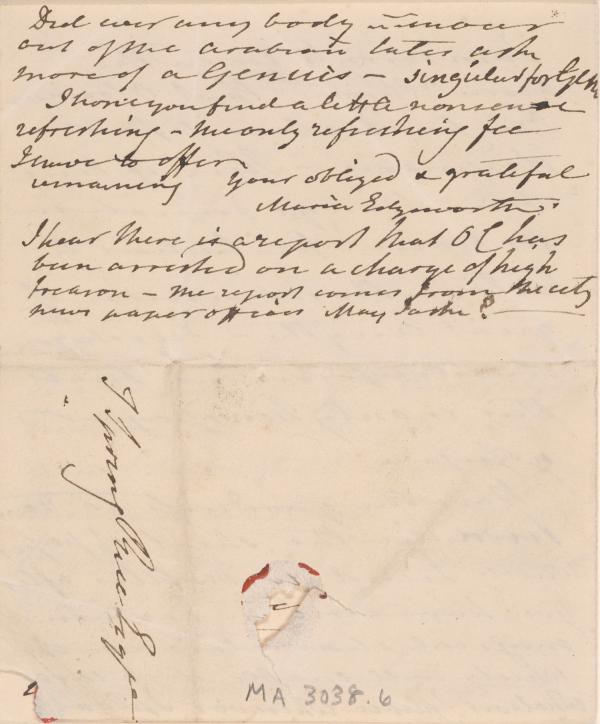 Did ever any body in or
out of the arabian tales ask
more of a Genius – singular for Genii
I hope you find a little nonsense
refreshing – the only refreshing fee
I have to offer
remaining your obliged & grateful
Maria Edgeworth
I hear there is a report that O C has
been arrested on a charge of high
treason – the report comes from the city
news paper offices May
T Spring Rice Esqre
MA 3038.6